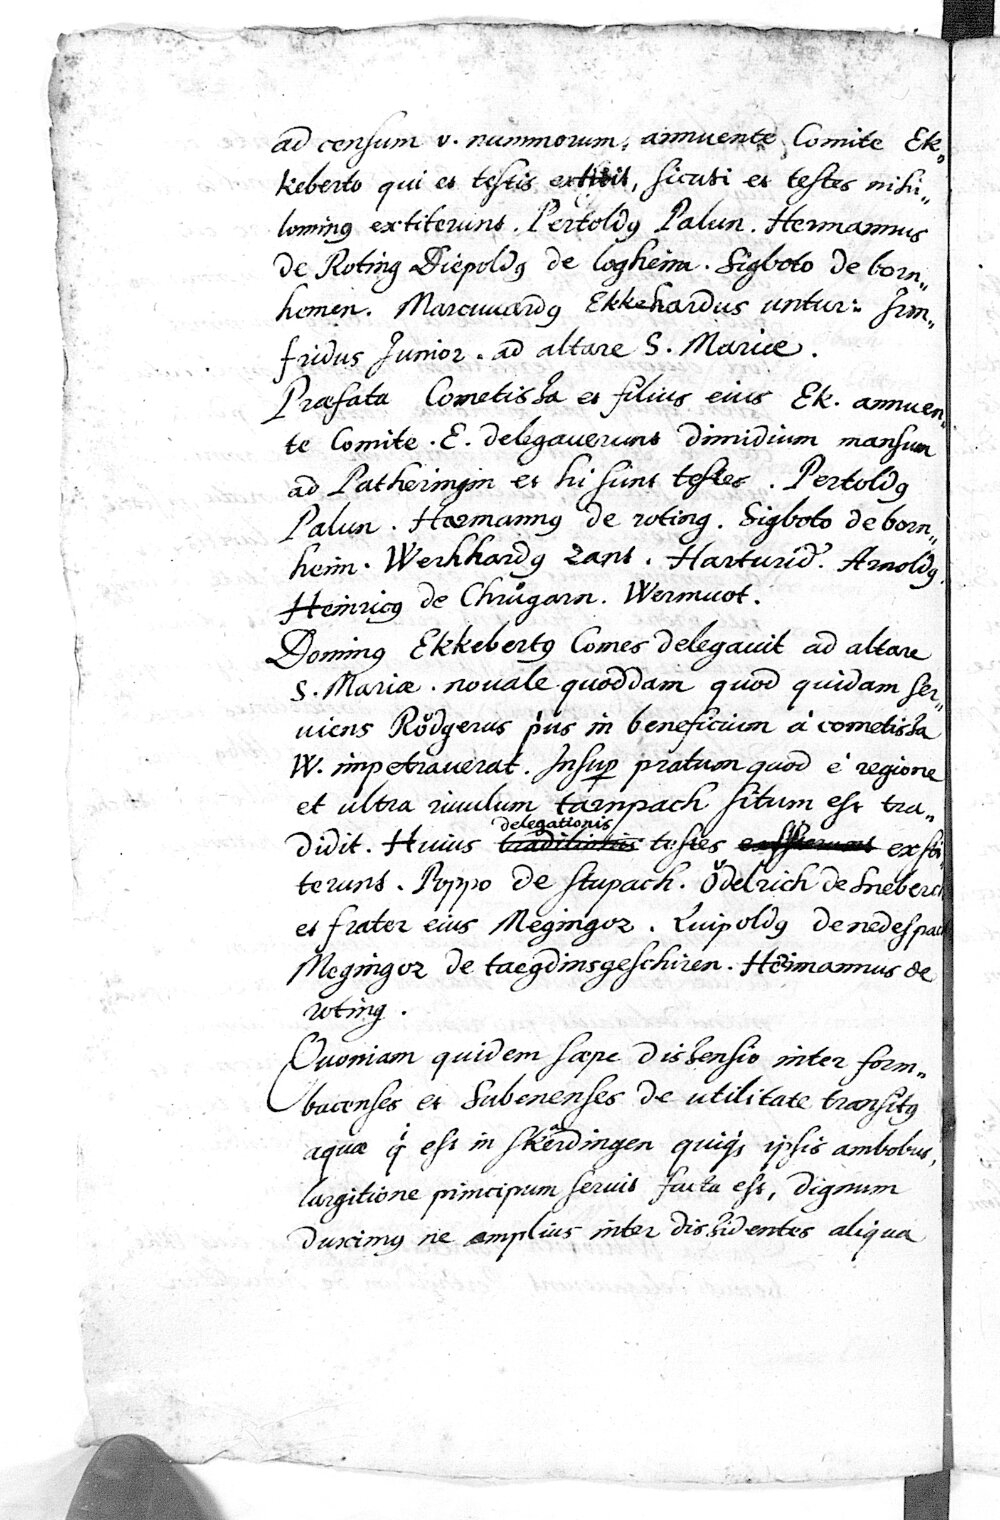 ad censum v. nummorum, annuente Comite Ek„
keberto qui et testis extitit, sicuti et testes nihi„
lominꝰ extiterunt. Pertoldꝰ Palun. Hermannus
de Roting Diepoldꝰ de logheim. Sigboto de born„
hemen. Marcuuardꝰ Ekkehardus untur: Irm„
fridus Junior. ad altare S. Mariæ.
Præfata Cometissa et filius eius Ek. annuen„
te Comite. E. delegauerunt dimidium mansum
ad Patheringin et hi sunt testes. Pertoldꝰ
Palun. Hærmannꝰ de roting. Sigboto de born„
heim. Werhhardꝰ Zant. Harturid̉. Arnoldꝰ.
Heinricꝰ de Chrůgarn. Wermuot.
Dominꝰ Ekkebertꝰ Comes delegauit ad altare
S. Mariæ. nouale quoddam quod quidam ser„
uiens Růdgerus p'us in beneficium à cometissa
W. impetrauerat. Insuꝑ pratum quod è regione
et ultra riuulum tærnpach situm est tra„
didit. Huius traditionis testes exstiterunt exsti„
delegationis
terunt. Poppo de stupach. Ŏdelrich de Sneberch
et frater eius Megingoz. Luipoldꝰ de nedespach
Megingoz de taegdinsgeschiren. Heimannus de
roting.
Quoniam quidem sæpe dissensio inter form„
bacenses et Subenenses de utilitate transitꝰ
aquæ q̇ est in skêrdingen quiq́; ipsis ambobus,
largitione principum seruis facta est, dignum
duximꝰ ne amplius inter dissidentes aliqua